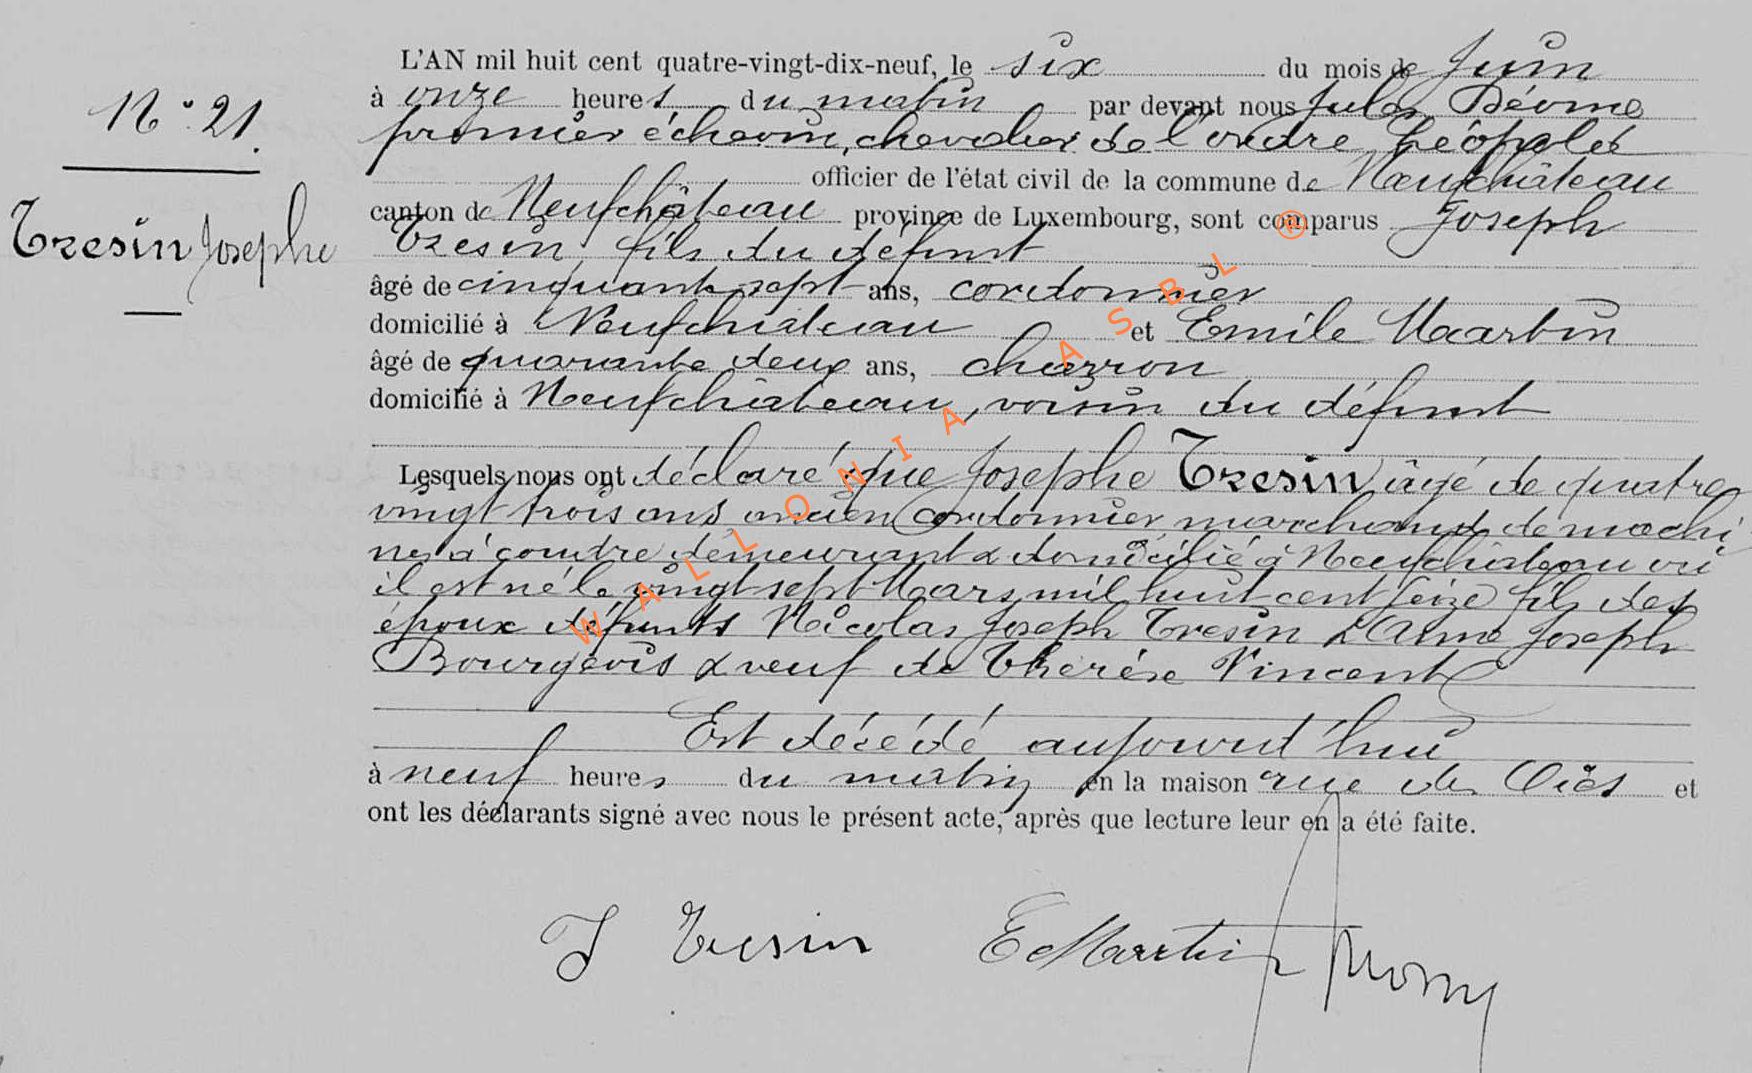 N° 21.
Tresin Josephe
L'AN mil huit cent quatre-vingt-dix-neuf, le six du mois de Juin
à onze heures du matin par devant nous Jules
premier échevin, chevalier de l'ordre Léopold
officier de l'état civil de la commune de Neufchâteau
canton de Neufchâteau province de Luxembourg, sont comparus Joseph
Tresin, fils du défunt
âgé de cinquante sept ans, cordonnier
domicilié à Neufchâteau et Emile Martin
âgé de quarante deux ans, charron
domicilié à Neufchâteau, voisin du défunt
Lesquels nous ont déclaré que Josephe Tresin âgé de quatre
vingt trois ans ancien cordonnier marchand de machi
nes à coudre demeurant & domicilié à Neufchâteau où
il est né le vingt sept Mars mil huit cent seize fils des
époux défunts Nicolas Joseph Tresin & Anne Joseph
Bourgeois & veuf de Thérèse Vincent
Est décédé aujourd'hui
à neuf heures du matin en la maison rue des et
ont les déclarants signé avec nous le présent acte, après que lecture leur en a été faite.
J Tresin E Martin
WALLONIA ASBL ®